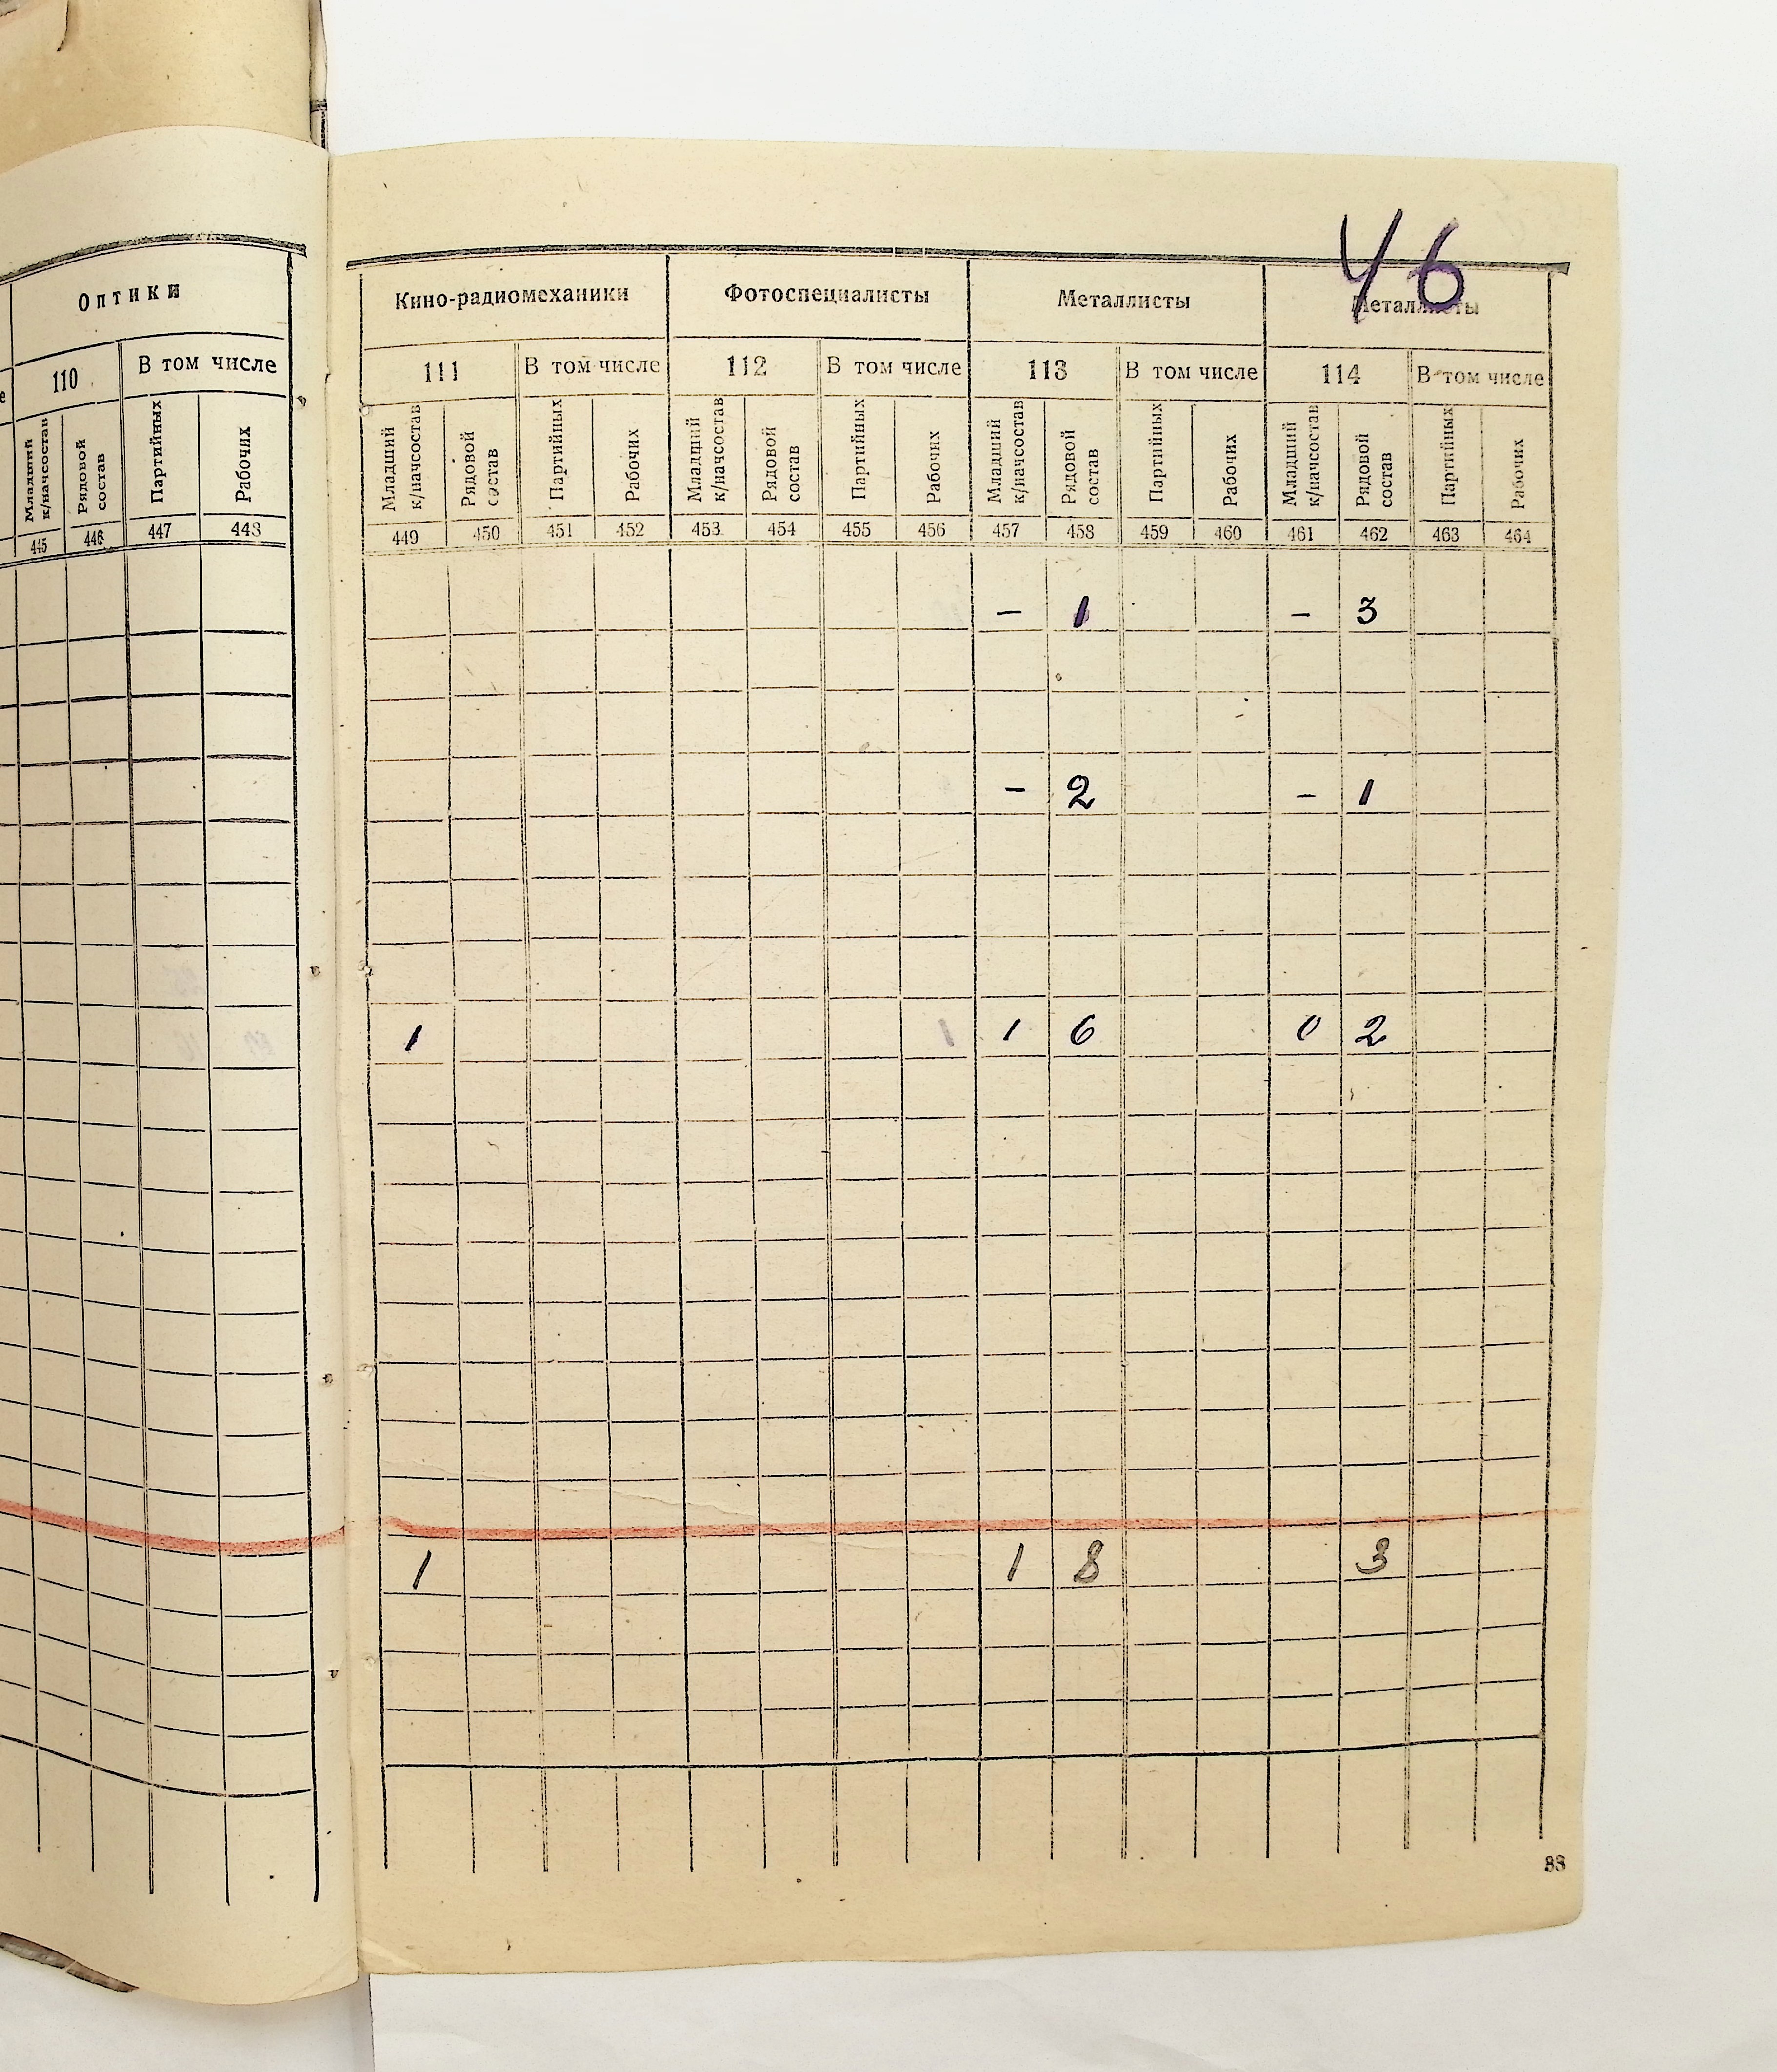 46
Оптики
110 В том числе
Младший к/начсостав Рядовой состав Партийных Рабочих
445 446 447 448
Кино-радиомеханики Фотоспециалисты Металлисты Металлисты
111 В том числе 112 В том числе 113 В том числе 114 В том числе
Младший к/начсостав Рядовой состав Партийных Рабочих Младший к/начсостав Рядовой состав Партийных Рабочих Младший к/начсостав Рядовой состав Партийных Рабочих Младший к/начсостав Рядовой состав Партийных Рабочих
449 450 451 452 453 454 455 456 457 458 459 460 461 462 463 464
- 1 - 3
- 2 - 1
1 1 6 0 2
1 1 8 3
33